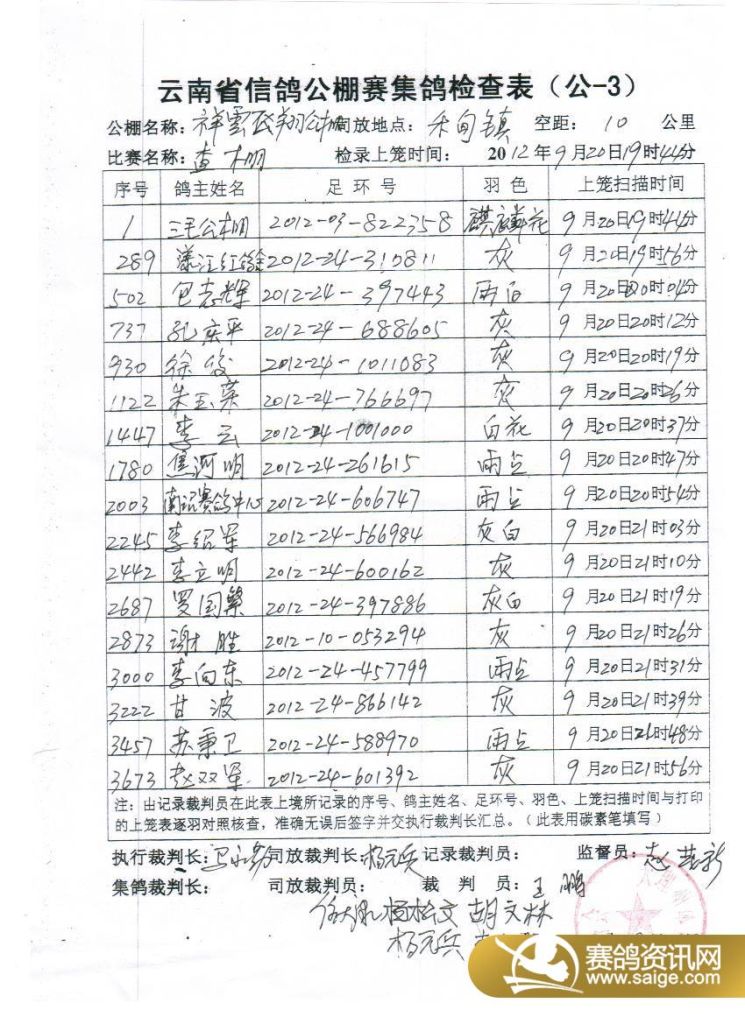 云南省信鸽公棚赛集鸽检查表（公-3）
公棚名称：祥雲 司放地点：禾甸镇 空距：10 公里
比赛名称：查棚 检录上笼时间：2012年9月20日19时44分
序号 鸽主姓名 足环号 羽色 上笼扫描时间
1 三毛公棚 2012-03-822358 麒麟花 9月20日19时44分
289 2012-24-310811 灰 9月20日19时56分
502 包志辉 2012-24-397443 雨白 9月20日20时04分
737 孔庆平 2012-24-688605 灰 9月20日20时12分
930 徐俊 2012-24-1011083 灰 9月20日20时19分
1122 朱玉英 2012-24-766697 灰 9月20日20时26分
1447 李云 2012-24-1001000 白花 9月20日20时37分
1780 焦河明 2012-24-261615 雨点 9月20日20时47分
2003 南诏赛鸽中心 2012-24-606747 雨点 9月20日20时54分
2245 李绍军 2012-24-566984 灰白 9月20日21时03分
2442 李立明 2012-24-600162 灰 9月20日21时10分
2687 罗国繁 2012-24-397886 灰白 9月20日21时19分
2873 谢胜 2012-10-053294 灰 9月20日21时26分
3000 李向东 2012-24-457799 雨点 9月20日21时31分
3222 甘波 2012-24-866142 灰 9月20日21时39分
3457 苏秉卫 2012-24-588970 雨点 9月20日21时48分
3673 赵双军 2012-24-601392 灰 9月20日21时56分
注：由记录裁判员在此表上填所记录的序号、鸽主姓名、足环号、羽色、上笼扫描时间与打印
的上笼表逐羽对照核查，准确无误后签字并交执行裁判长汇总。（此表用碳素笔填写）
执行裁判长： 司放裁判长：杨元兵 记录裁判员： 监督员：赵
集鸽裁判长： 司放裁判员： 裁判员：王鹏
杨松文 胡文林
杨元兵
赛鸽资讯网
www.saige.com